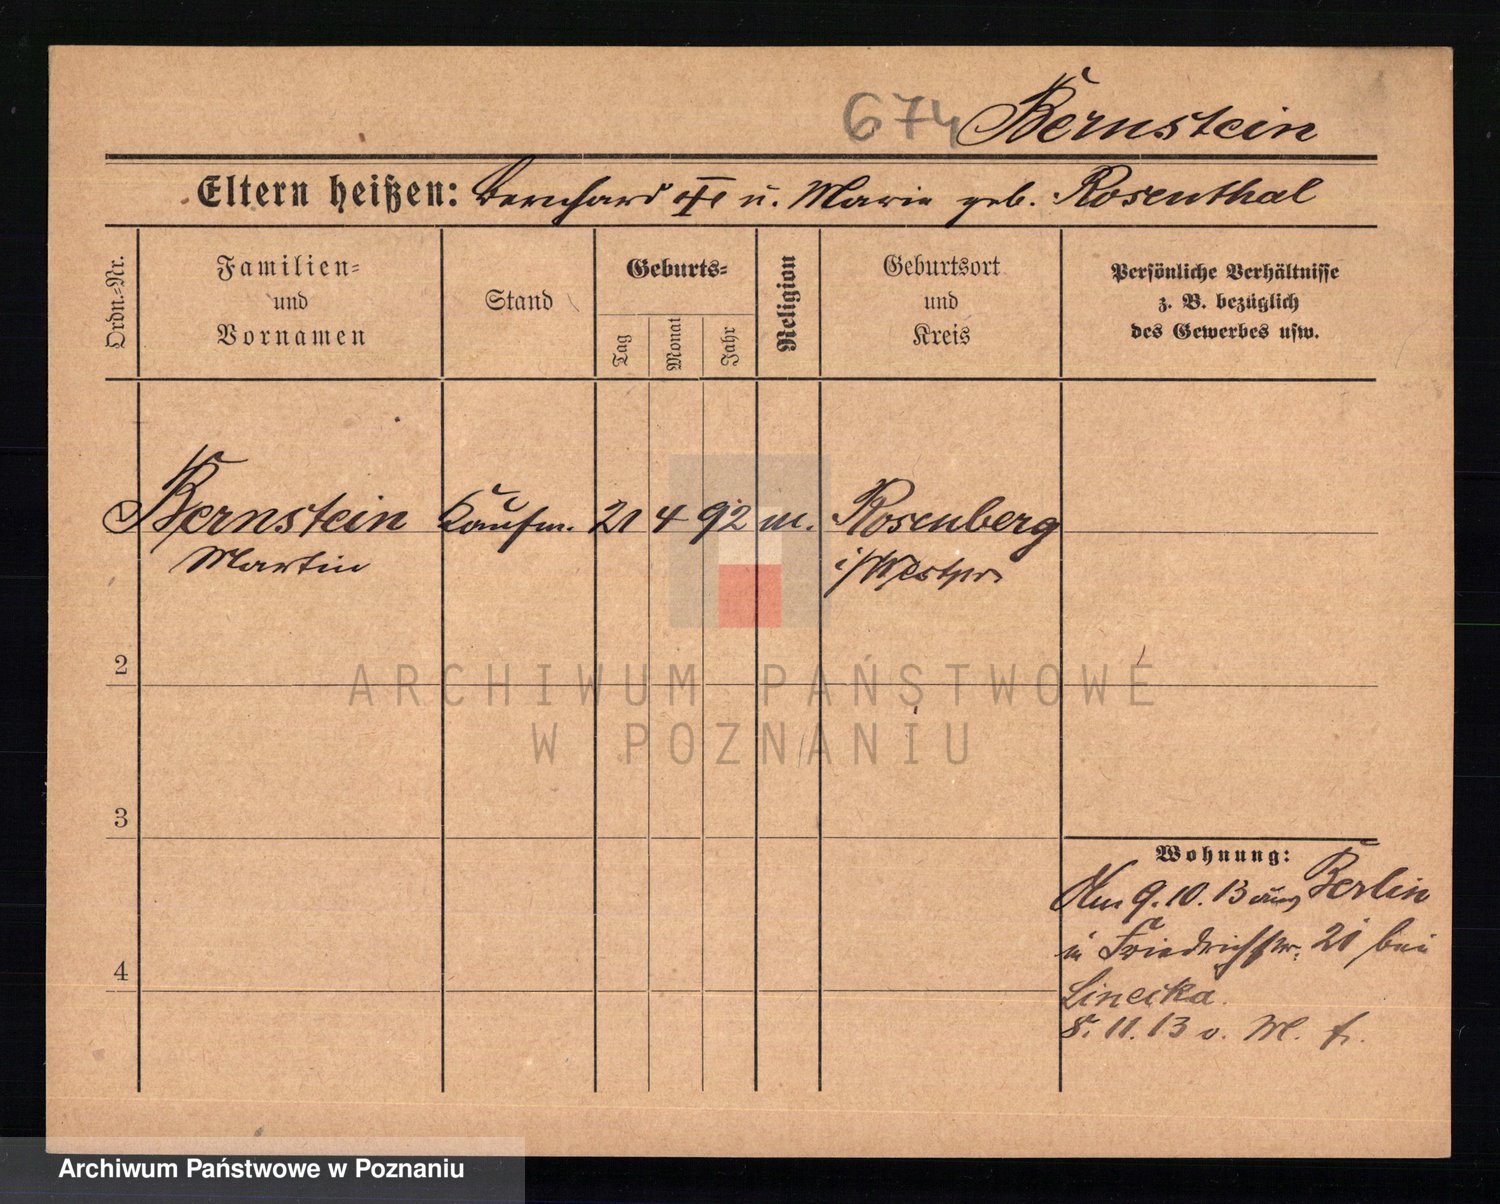 674 Bernstein
Eltern heißen: Bernhard u. Marie geb. Rosenthal
Ordn.-Nr.
Familien-
und
Vornamen
Stand
Geburts-
Tag
Monat
Jahr
Religion
Geburtsort
und
Kreis
Persönliche Verhältnisse
z. B. bezüglich
des Gewerbes usw.
Bernstein Kaufm. 21 4 92 m. Rosenberg
Martin i/Westpr.
2
3
4
Wohnung:
Am 9.10.13 aus Berlin
in Friedrichstr. 21 bei
Lineika.
5.11.13 v. M. f.
ARCHIWUM PAŃSTWOWE
W POZNANIU
Archiwum Państwowe w Poznaniu